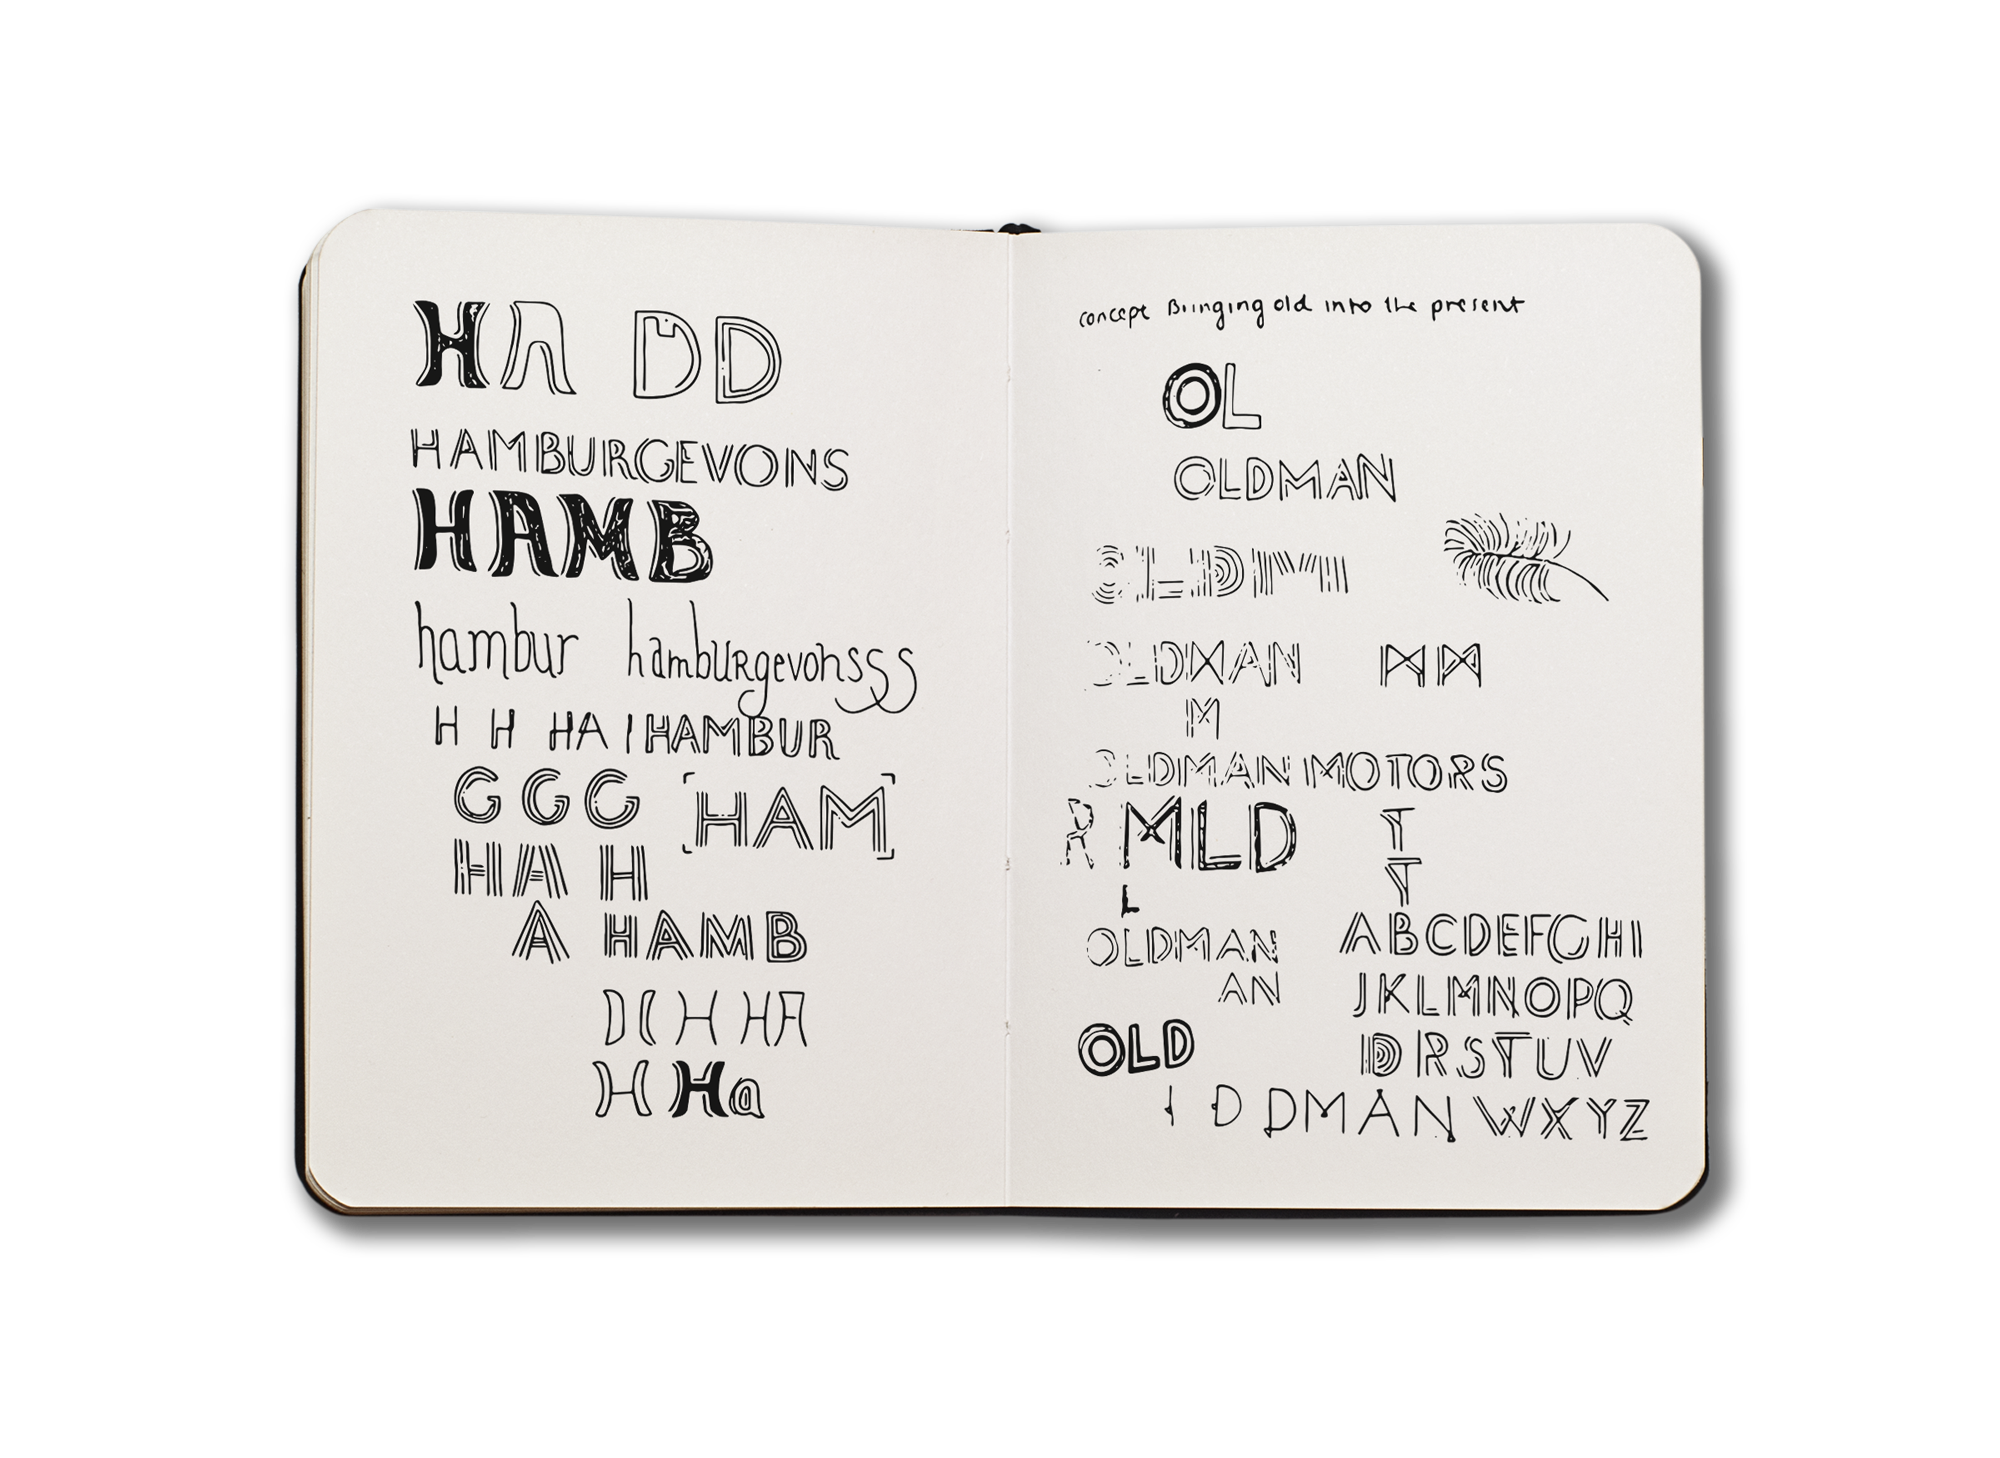 HA DD
HAMBURGEVONS
HAMB
hambur hamburgevonsss
H H HA I HAMBUR
G G G [HAM]
HA H
A HAMB
H HA
H Ha
concept Bringing old into the present
OL
OLDMAN
OLDM
OLDMAN M M
M
OLDMAN MOTORS
R MLD T
T
L
OLDMAN ABCDEFGHI
AN JKLMNOPQ
OLD D RSTUV
D DMAN WXYZ